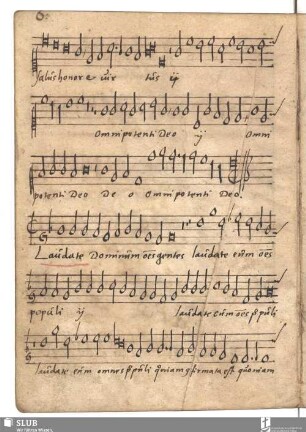 8.
salus honor e vir tus ij
Omnipotenti Deo ij Omni
potenti Deo De o. Omnipotenti Deo.
Laudate Dominum oes gentes laudate eum oes
populi ij laudate eum oes populi
laudate eum omnes populi quoniam firmata est quoniam
SLUB
Wir führen Wissen.